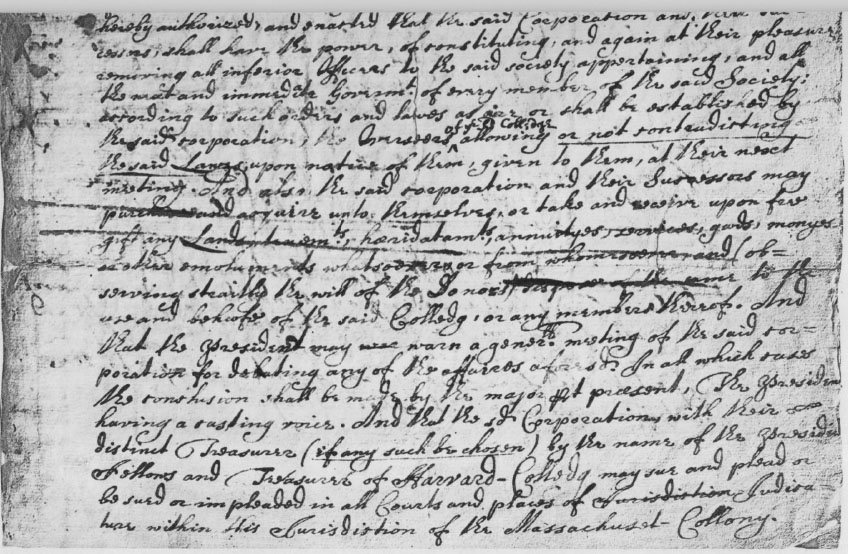 hereby authorized, and enacted that the said Corporation and their suc-
cessors, shall have the power, of constituting, and again at their pleasure
removing all inferior Officers to the said society appertaining, and all
the next and immediate Governmt. of every member of the said Society;
according to such orders and lawes as are or shall be established by
the said corporation, the Overseers of sd. Colledge allowing or not contradicting
the said Laws upon notice of them, given to them, at their next
meeting. And also the said corporation and their Successors may
purchase and acquire unto themselves, or take and receive upon free
gift any Lands, tenemts., hæridatamts., annuityes, services, goods, monyes
or other emoluments whatsoever, or from whomsoever and (ob=
serving straitly the will of the Donors) to the
use and behoofe of the said Colledg, or any members thereof. And
that the President may warn a generll. meeting of the said cor=
poration for debating any of the affaires aforesd. In all which cases
the conclusion shall be made by the major pt present, The President
having a casting voice. And that the sd. Corporation, with their
distinct Treasurer (if any such be chosen) by the name of the Presidt
Fellows and Treasurer of Harvard-Colledg may sue and plead or
be sued or impleaded in all Courts and places of Jurisdiction Judica
ture within this Jurisdiction of the Massachuset-Collony.